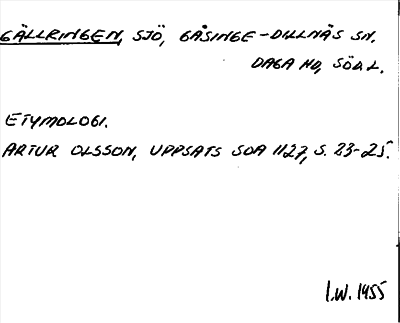 GÄLLRINGEN, SJÖ, GÅSINGE-DILLNÄS SN.
DAGA HD, SÖDL.
ETYMOLOGI.
ARTUR OLSSON, UPPSATS SOA 1127, S. 23-25.
I.W. 1955